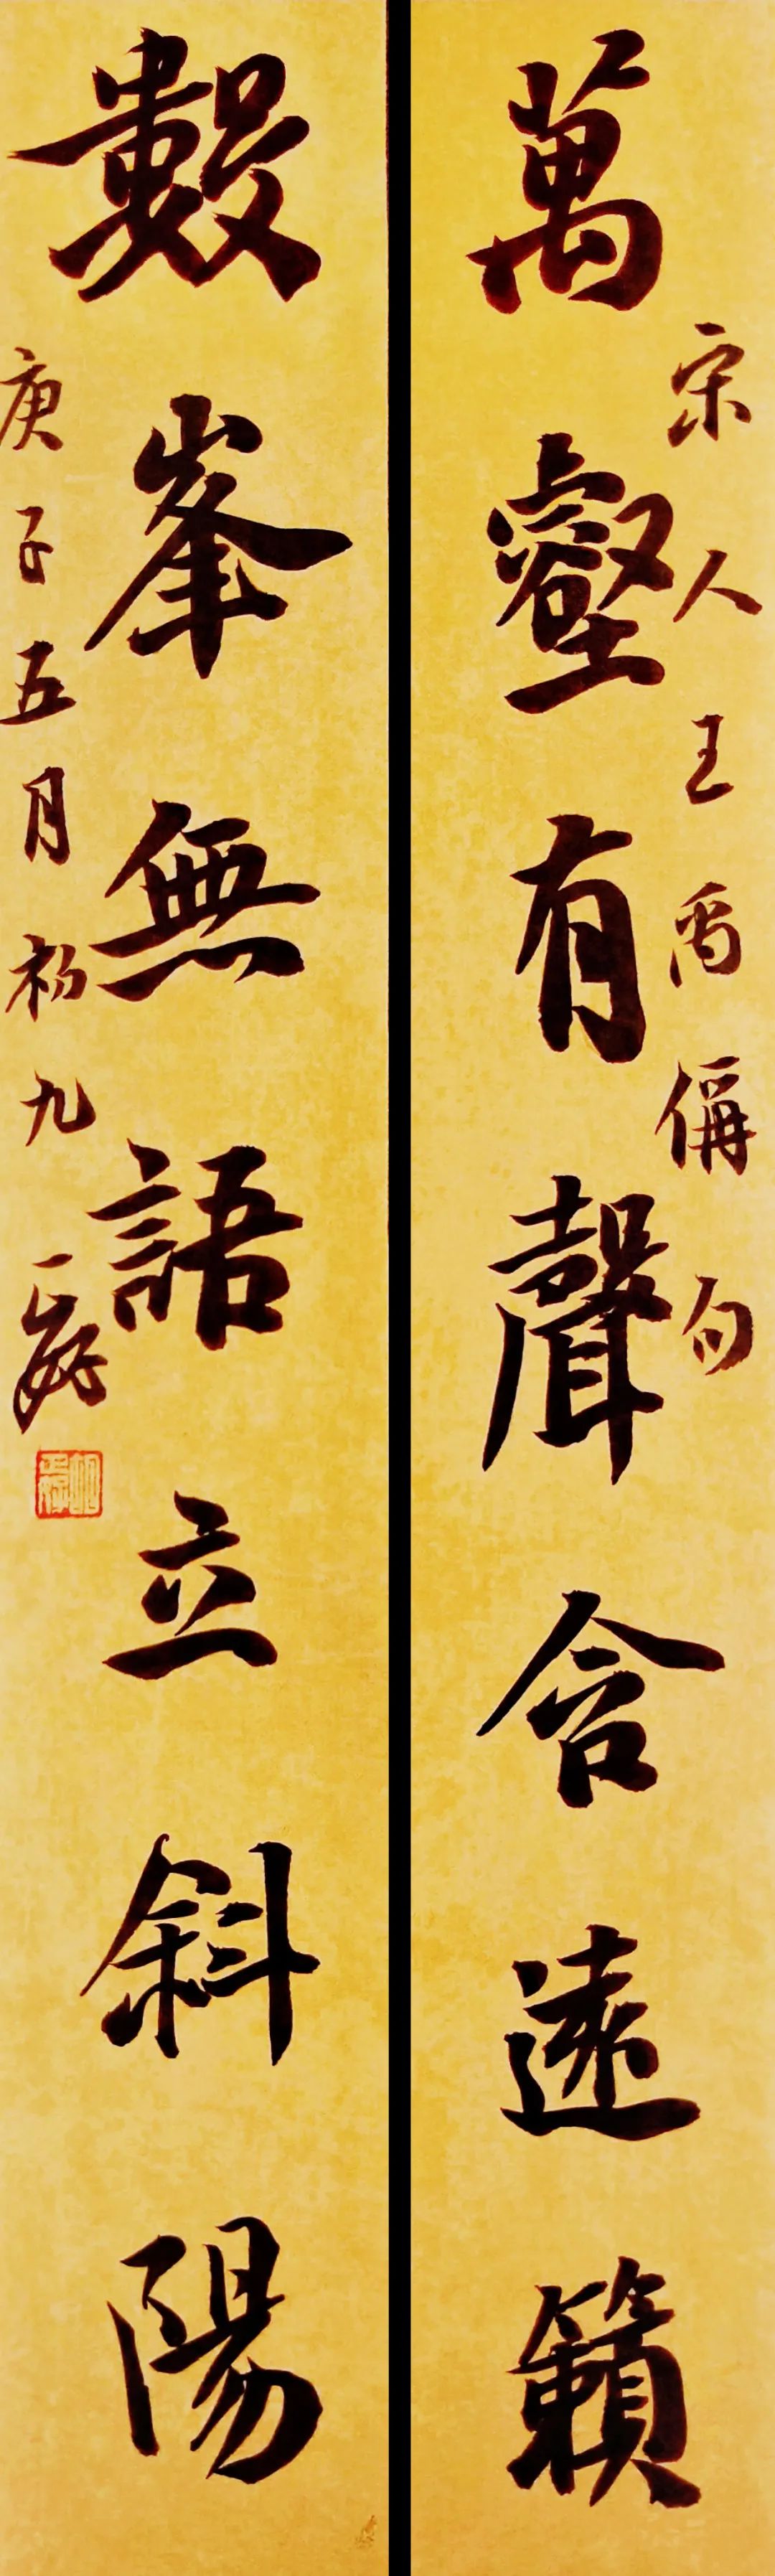 宋人王禹偁句
萬壑有聲含遠籟
數峯無語立斜陽
庚子五月初九